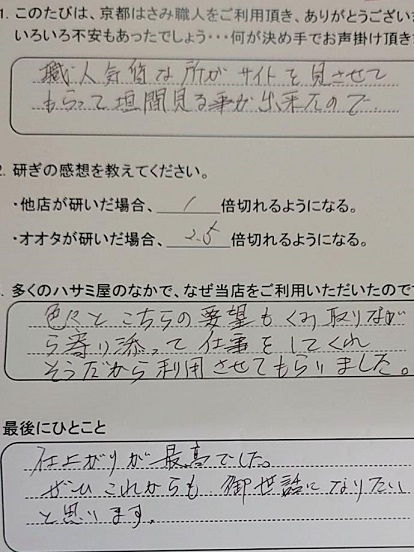 1. このたびは、京都はさみ職人をご利用頂き、ありがとうござい
いろいろ不安もあったでしょう・・・何が決め手でお声掛け頂き
職人気質な所がサイトを見させて
もらって垣間見る事が出来たので
2. 研ぎの感想を教えてください。
・他店が研いだ場合、 1 倍切れるようになる。
・オオタが研いだ場合、 2.5 倍切れるようになる。
. 多くのハサミ屋のなかで、なぜ当店をご利用いただいたので
色々とこちらの要望もくみ取りなが
ら寄り添って仕事をしてくれ
そうだから利用させてもらいました。
最後にひとこと
仕上がりが最高でした。
ぜひこれからも御世話になりたい
と思います。